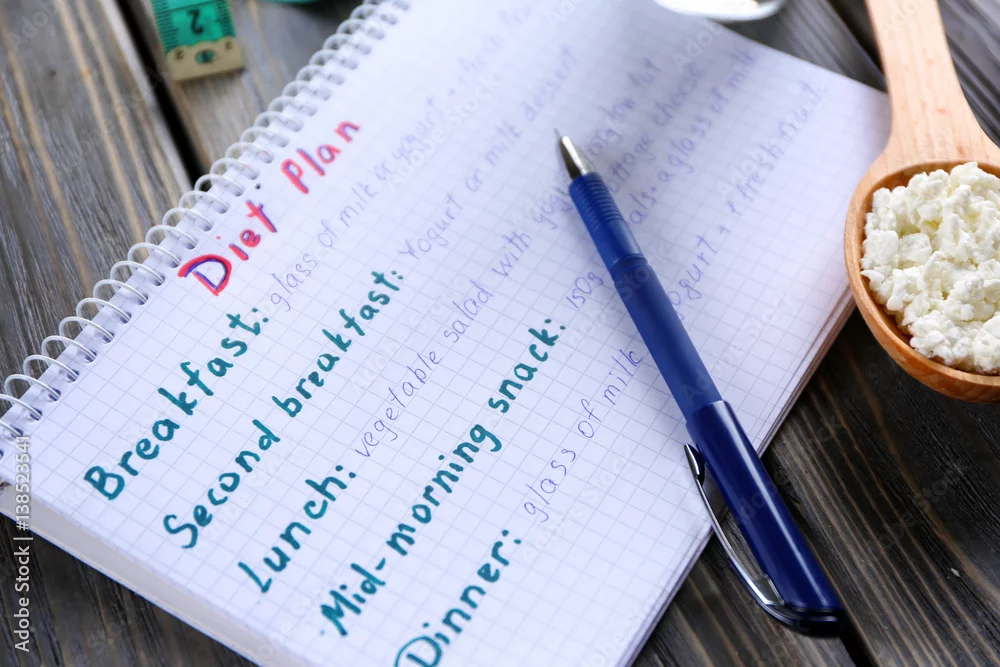 2
Diet Plan
Breakfast: glass of milk or yogurt +
Second breakfast: Yogurt or milk dessert
Lunch: vegetable salad with low fat
Mid-morning snack: 150g cottage cheese
glass of milk
+ a glass of milk
Dinner: yogurt + fresh
Adobe Stock | #138523541